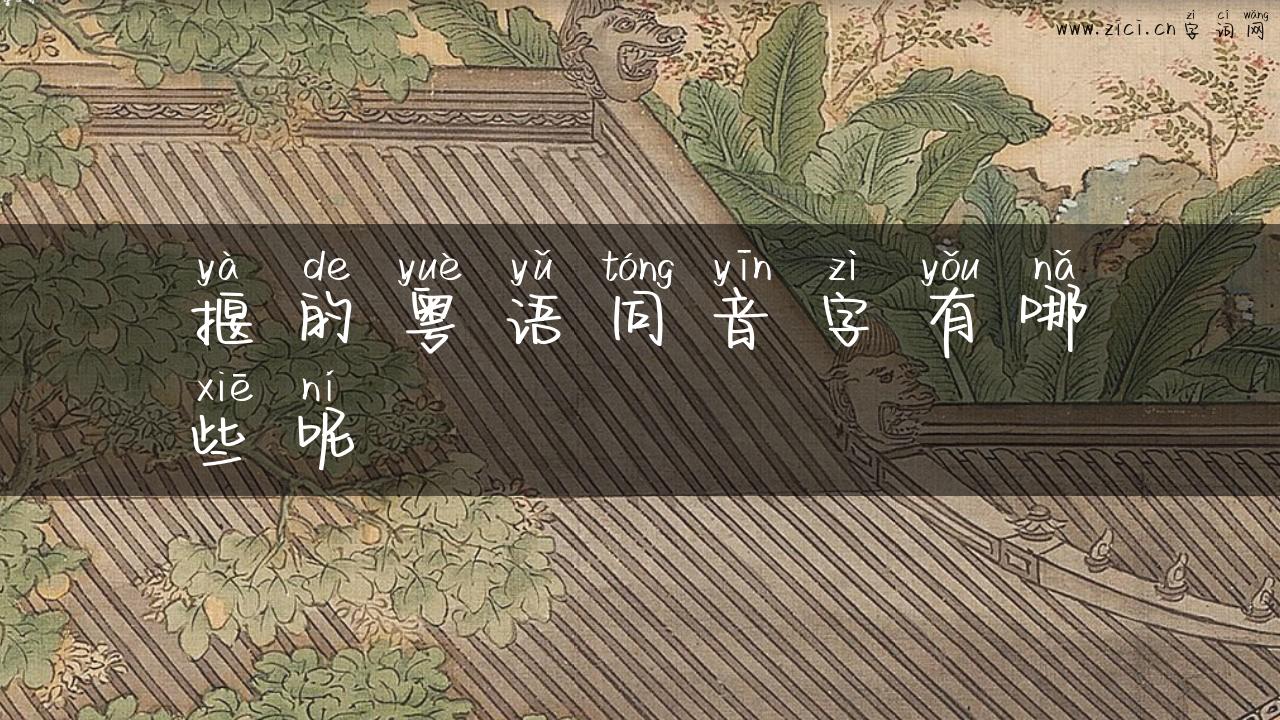 zì cí wǎng
www.zici.cn 字词网
yà de yuè yǔ tóng yīn zì yǒu nǎ
揠的粤语同音字有哪
xiē ní
些呢